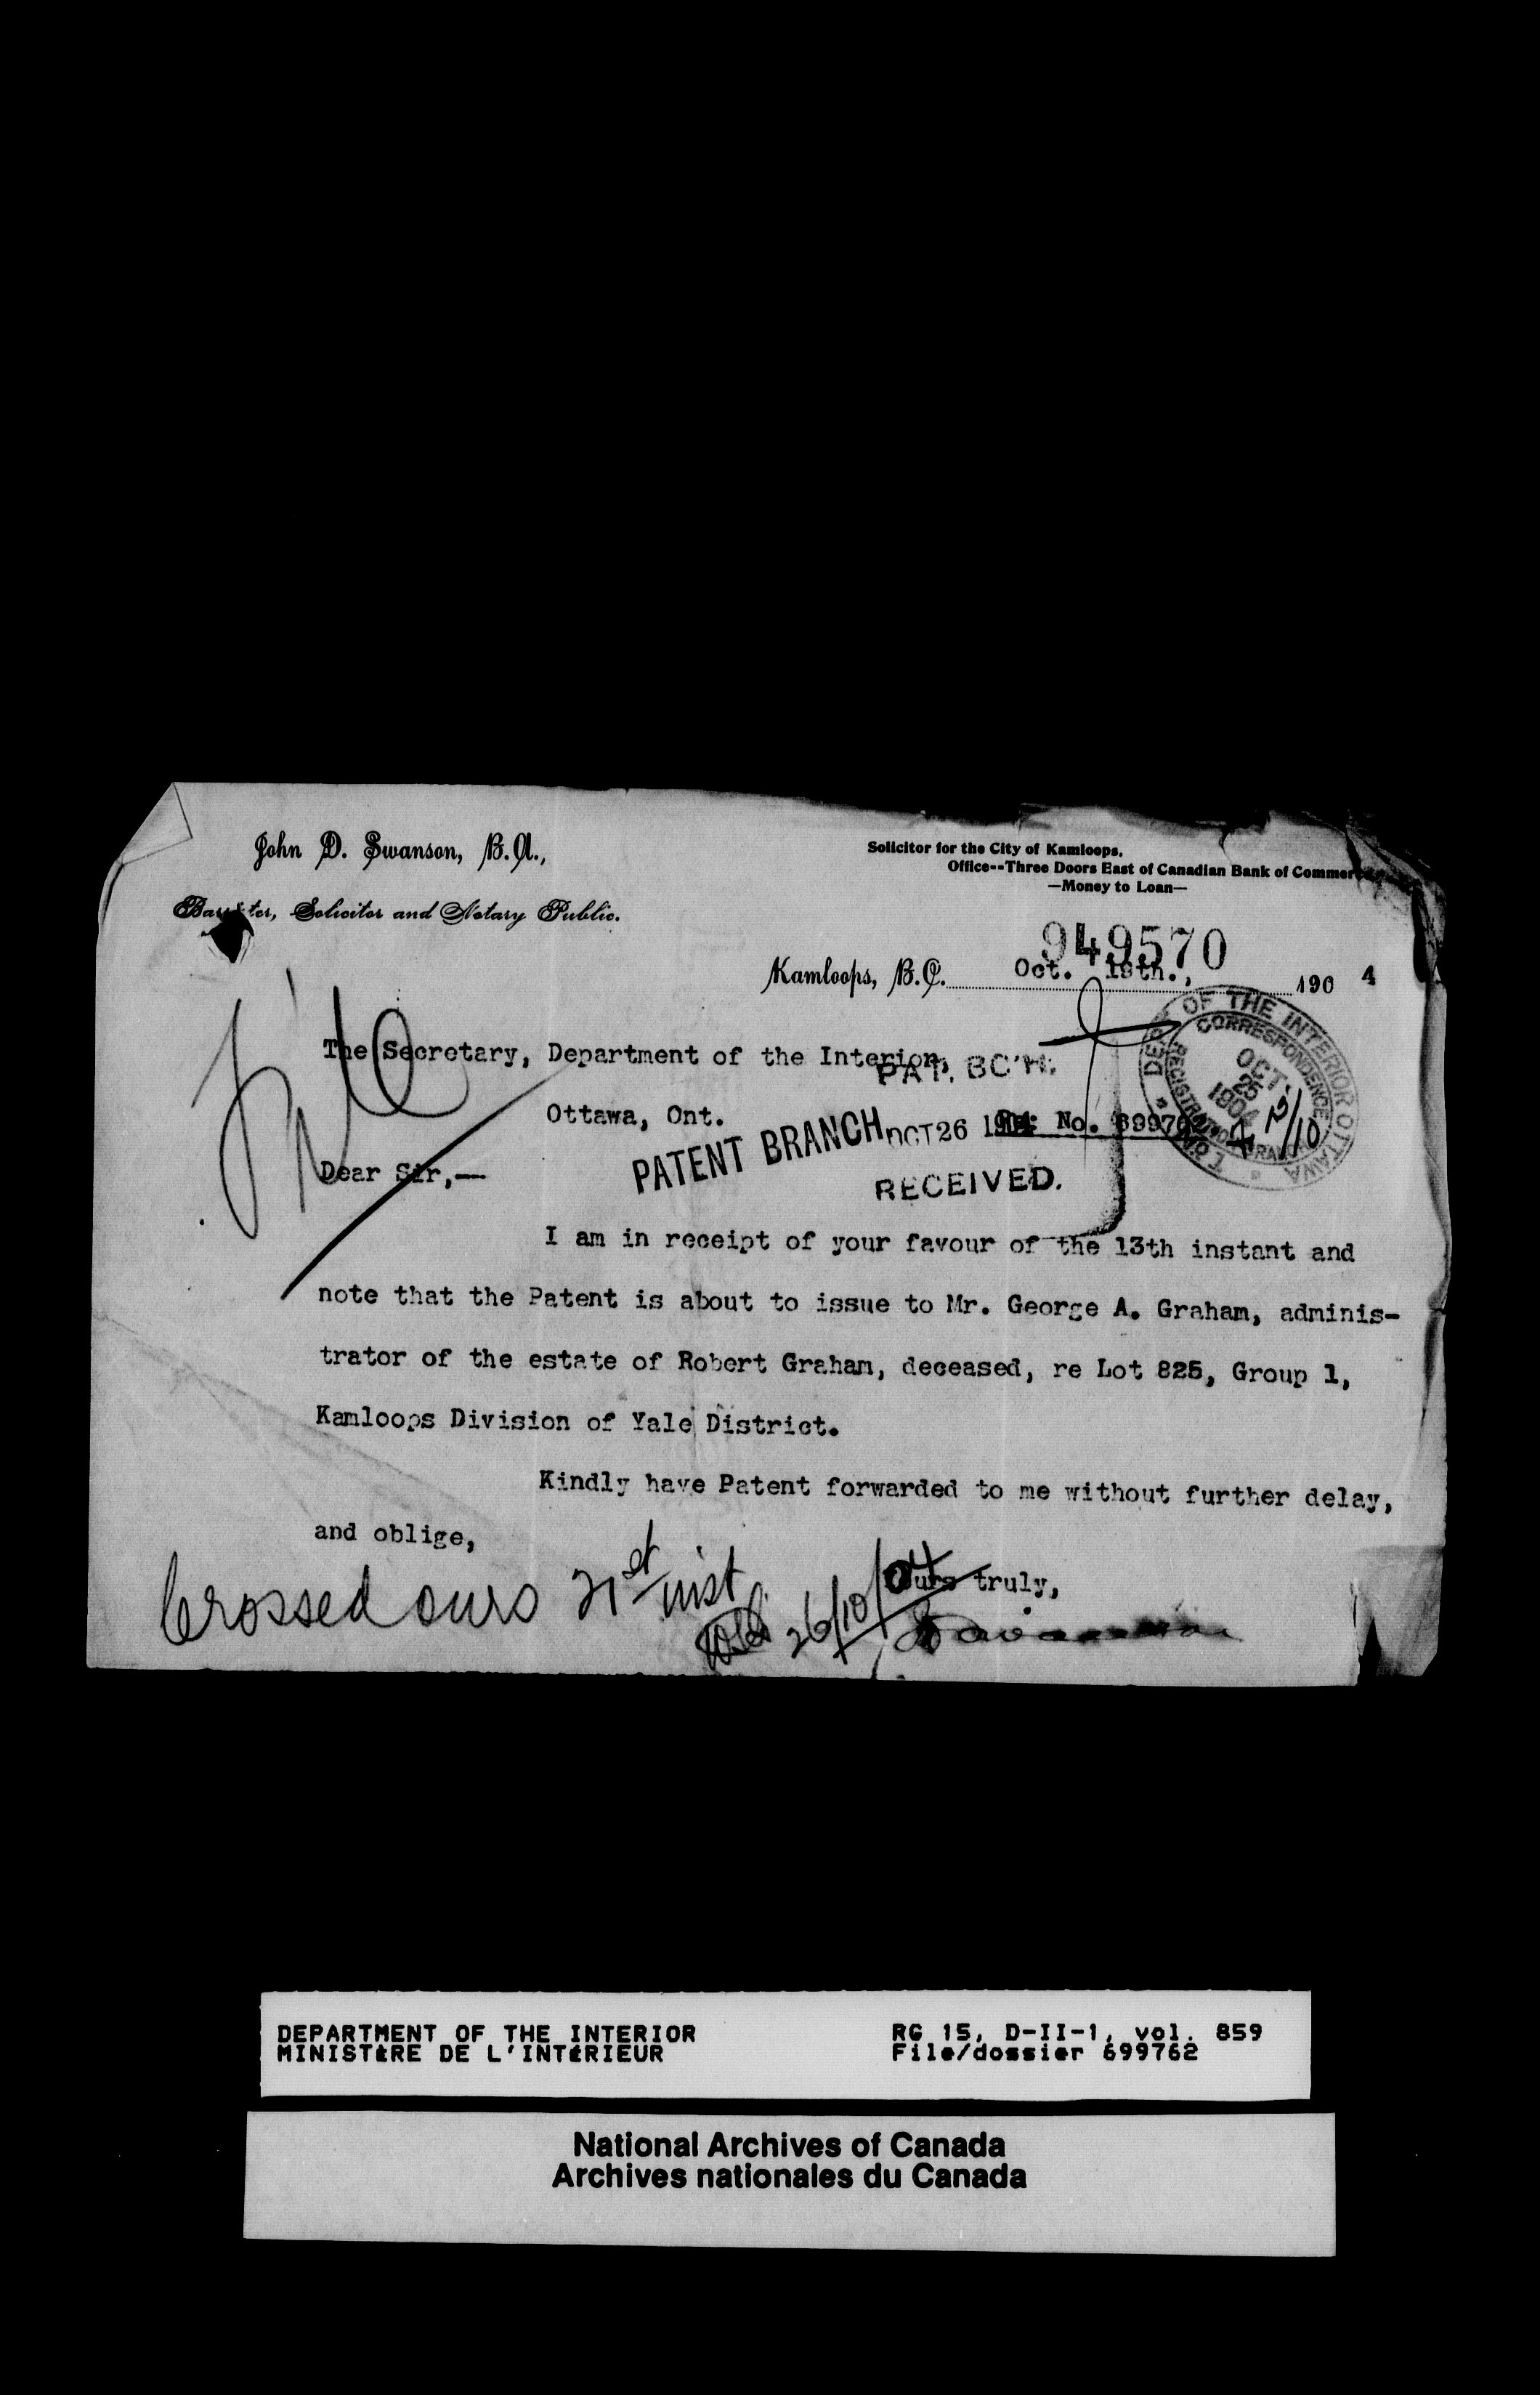 John D. Swanson, B.A.,
Barrister, Solicitor and Notary Public.
Solicitor for the City of Kamloops.
Office--Three Doors East of Canadian Bank of Commerce
—Money to Loan—
949570
Kamloops, B.C. Oct. 19th., 190 4
The Secretary, Department of the Interior,
Ottawa, Ont.
PAT. BCH.
PATENT BRANCH
OCT 26 1904
RECEIVED.
Re: No. 699762.
DEPT OF THE INTERIOR OTTAWA
CORRESPONDENCE
REGISTRATION BRANCH
OCT.
25
1904
Dear Sir,—
I am in receipt of your favour of the 13th instant and
note that the Patent is about to issue to Mr. George A. Graham, adminis-
trator of the estate of Robert Graham, deceased, re Lot 825, Group 1,
Kamloops Division of Yale District.
Kindly have Patent forwarded to me without further delay,
and oblige,
Yours truly,
Crossed ours 21st inst
26/10/04
DEPARTMENT OF THE INTERIOR
MINISTÈRE DE L'INTÉRIEUR
RG 15, D-II-1, vol. 859
File/dossier 699762
National Archives of Canada
Archives nationales du Canada